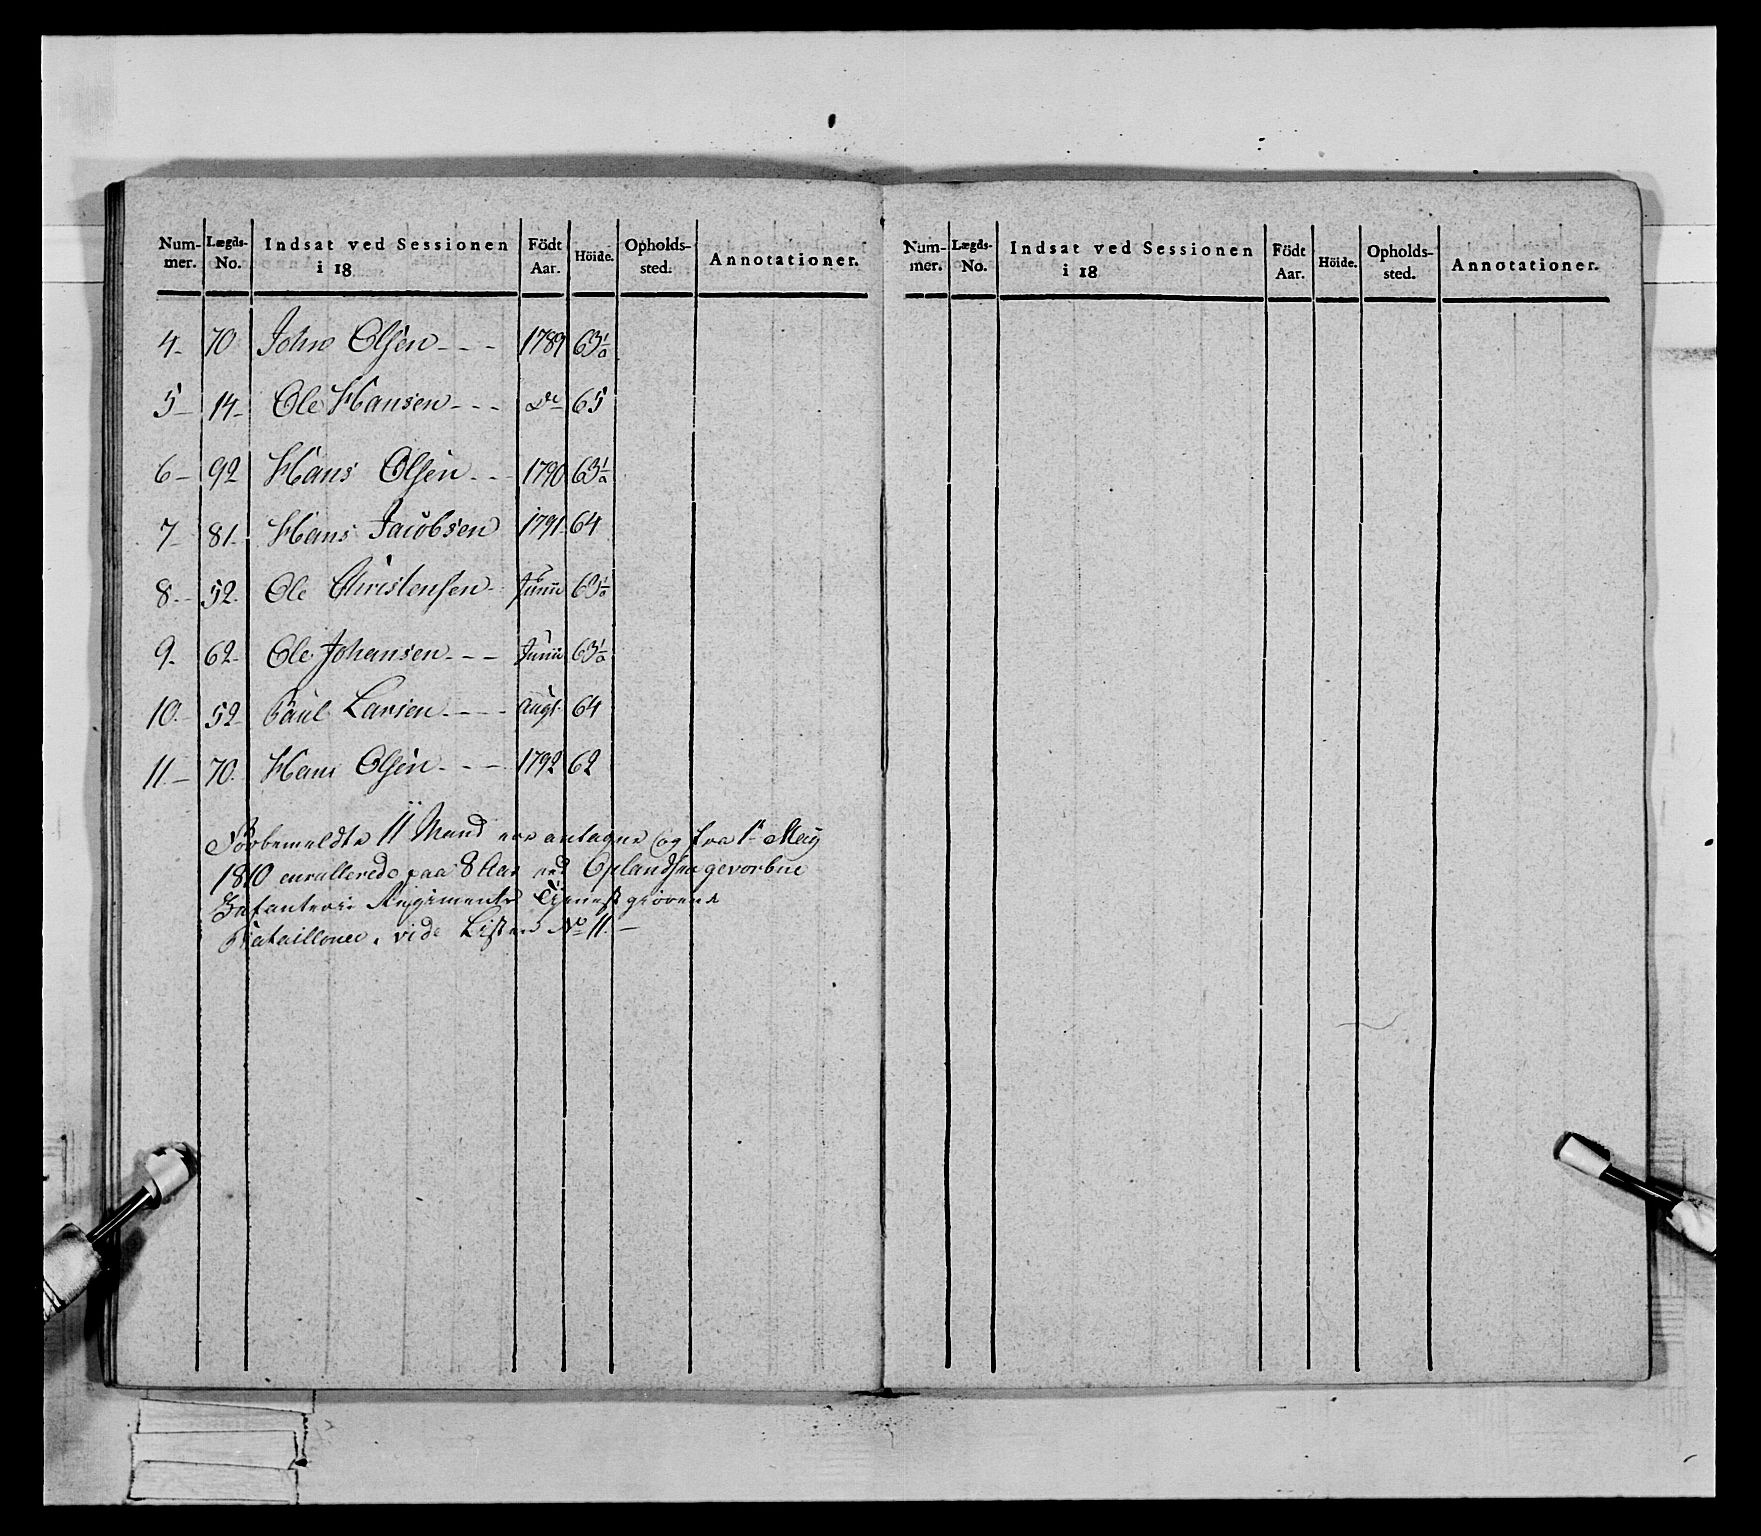 Num- Lægds- Indsat ved Sessionen Födt Höide. Opholds- Annotationer.
mer. No. i 18 Aar. sted.
4- 70 John Olsen - - - 1789 63½
5- 14- Ole Hansen - - - do 65
6- 92 Hans Olsen - - 1790 63½
7- 81- Hans Jacobsen 1791- 64
8- 52- Ole Christensen- Junii 63½
9- 62- Ole Johansen - - - Junii 63½
10- 52- Paul Larsen - - - - Augt. 64
11- 70- Hans Olsen - - - 1792 62
Forbemeldte 11 Mand ere antagne og fra 1te May
1810 enrullerede paa 8 Aar ved Oplandske gevorbne
Infanterie Regiments Tienestgiørende
Batailloner, vide Listen No 11. -
Num- Lægds- Indsat ved Sessionen Födt Höide. Opholds- Annotationer.
mer. No. i 18 Aar. sted.